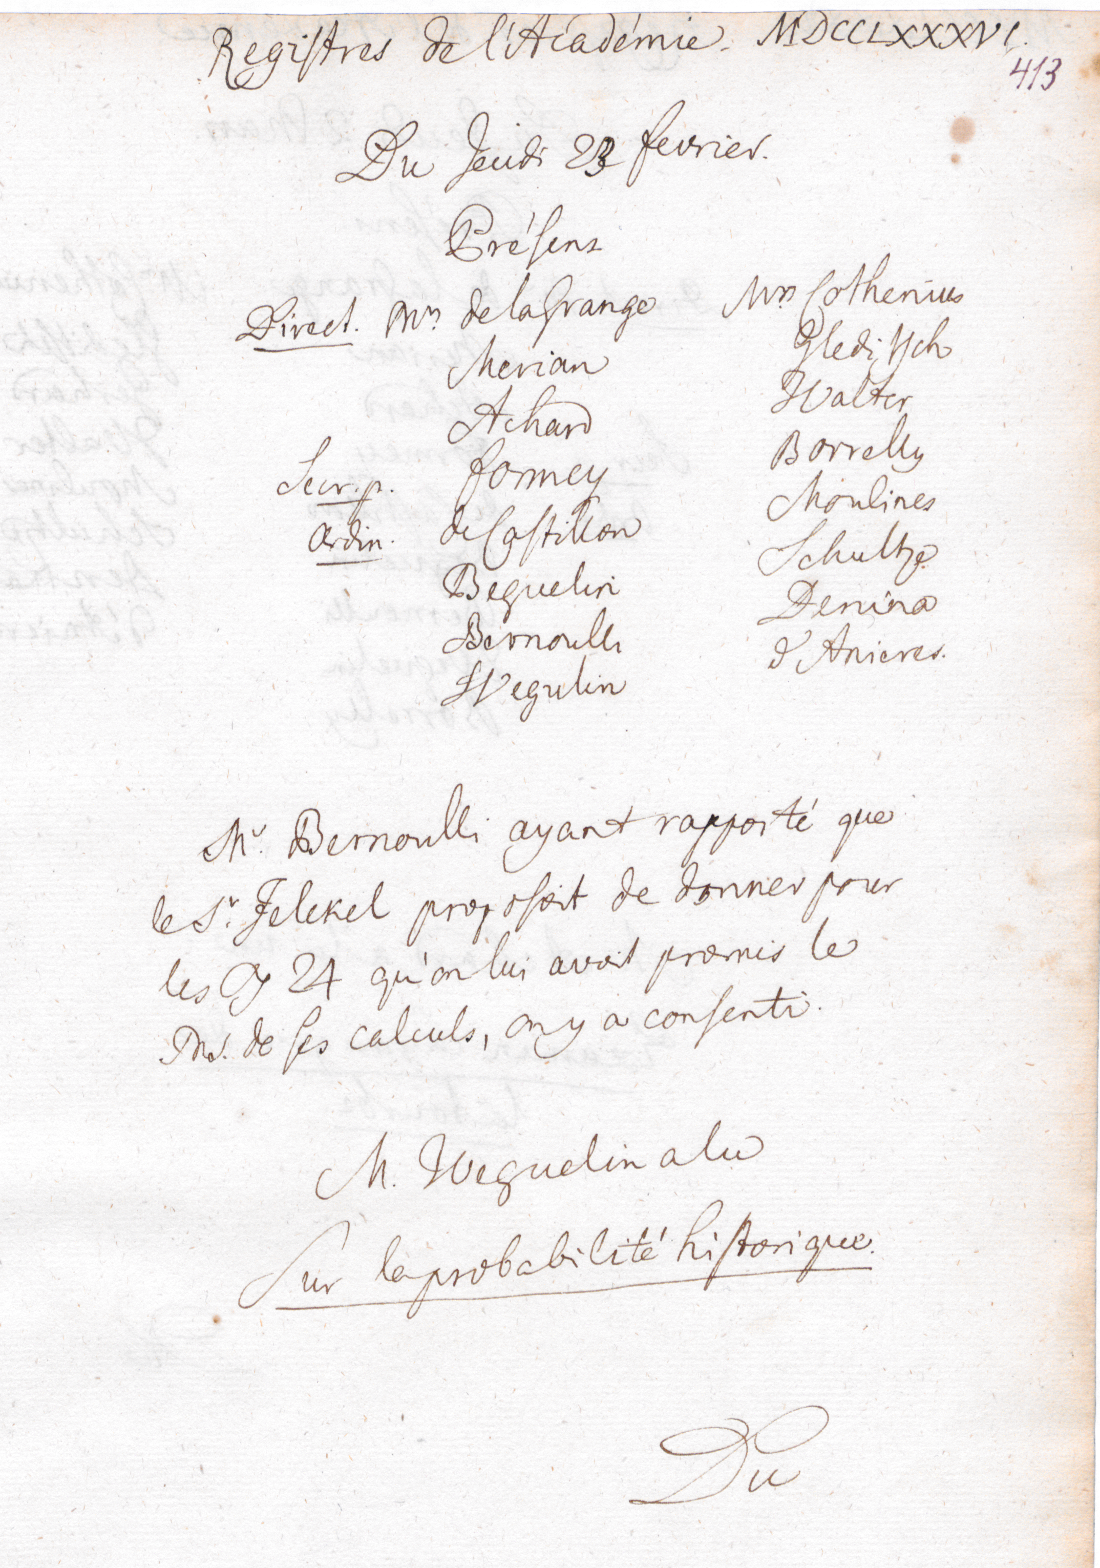 Registres de l'Académie. MDCCLXXXVI.
413
Du Jeudi 23 fevrier.
Présens
Direct. Mrs de la Grange
Merian
Achard
Secr. p. formey
Ordin. de Castillon
Beguelin
Bernoulli
Wegulin
Mrs Cothenius
Gleditsch
Walter
Borrelly
Moulines
Schultze
Denina
d'Anieres.
Mr. Bernoulli ayant rapporté que
le Sr. proposoit de donner pour
les 24 qu'on lui avoit promis le
Ms. de ses calculs, on y a consenti.
M. Weguelin a lu
Sur la probabilité historique.
Du